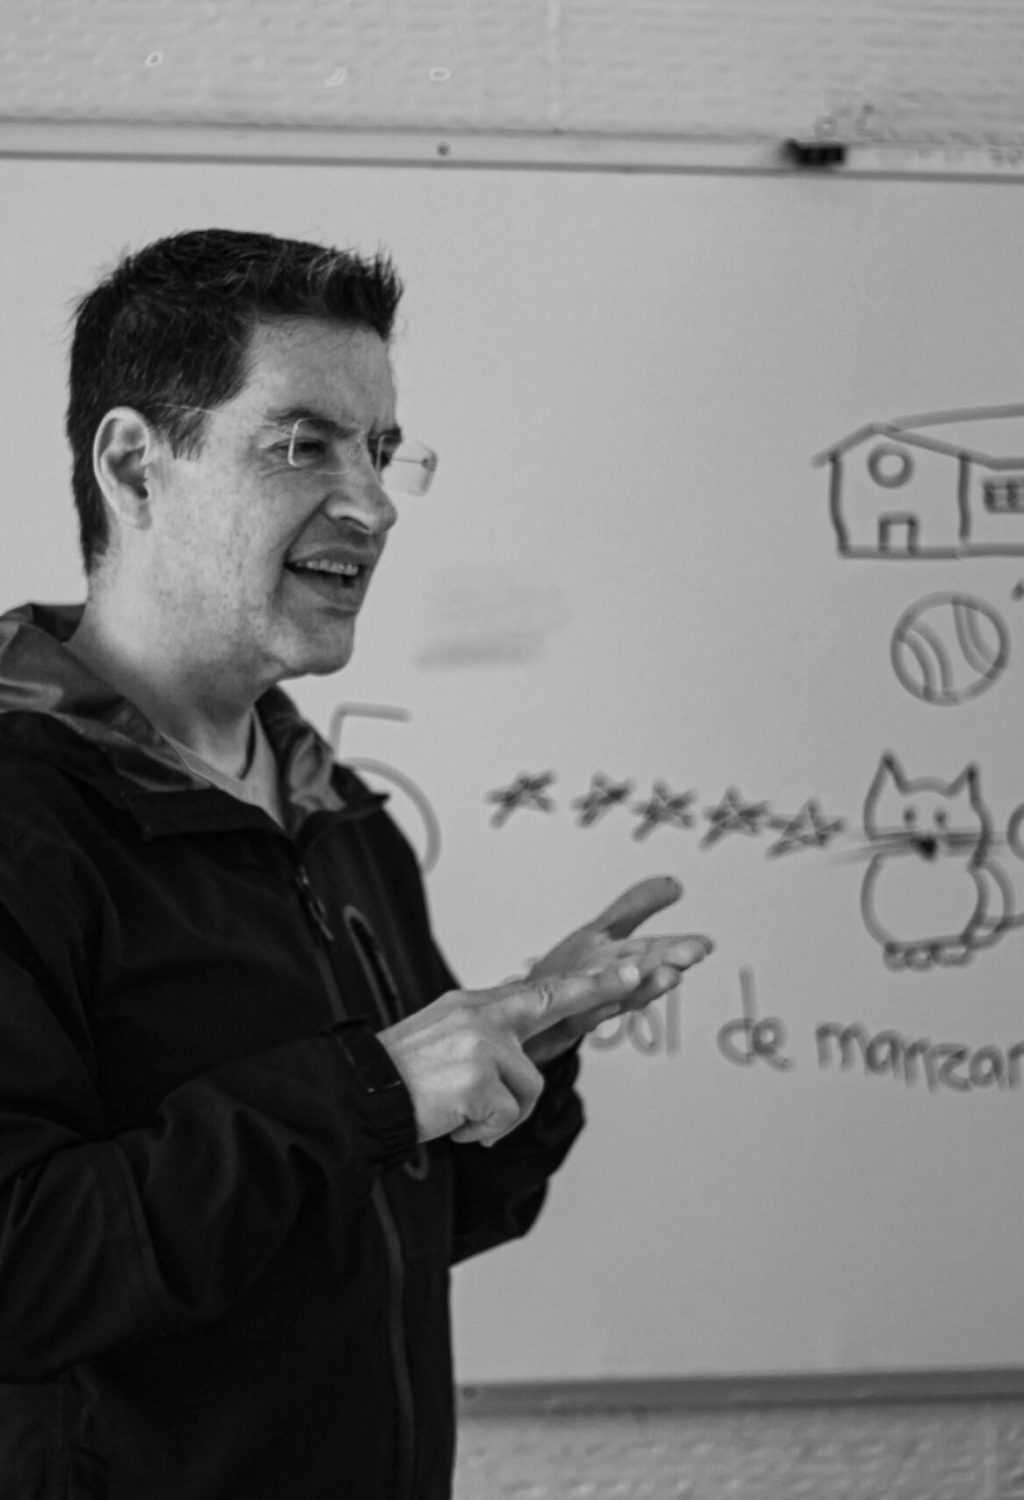 5
de manzan